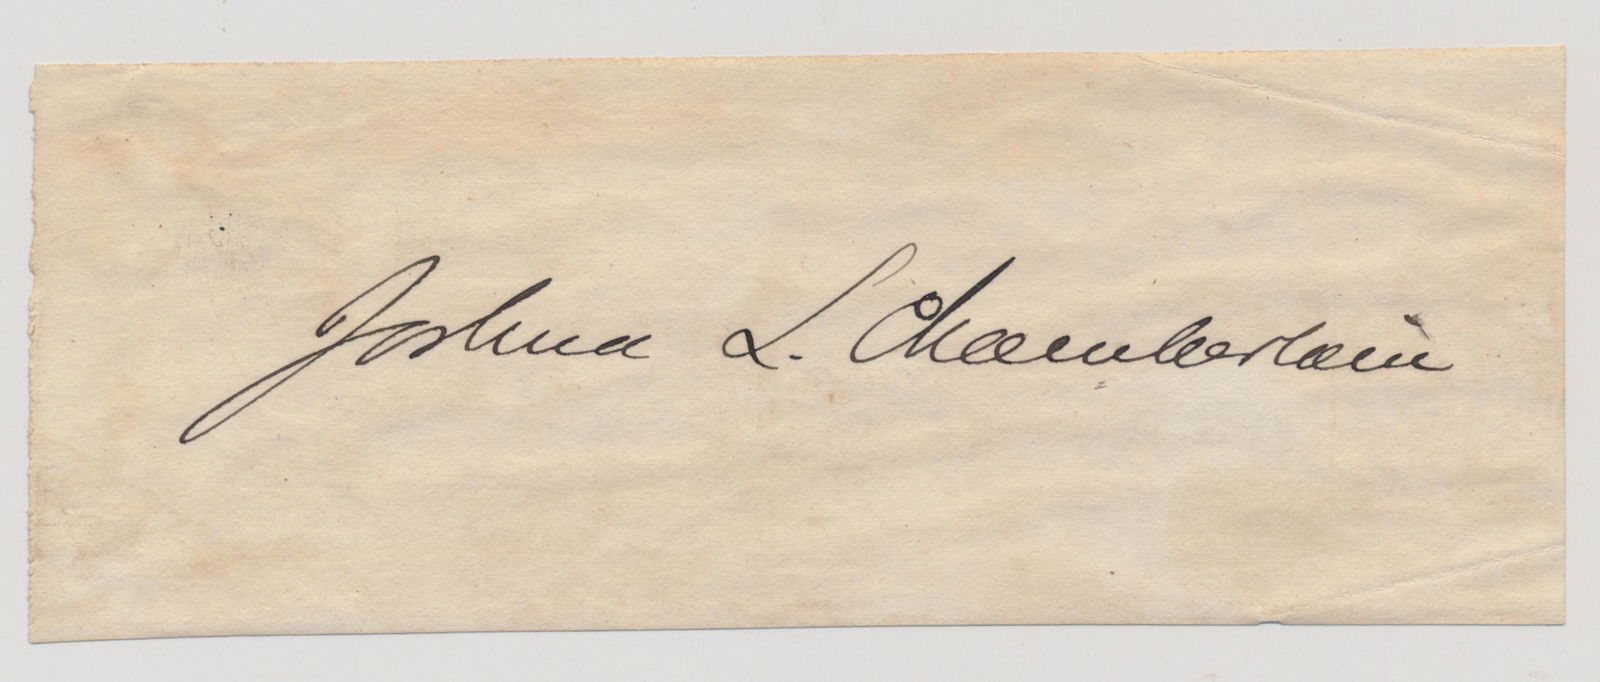 Joshua L. Chamberlain